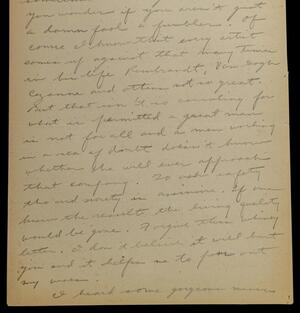 you wonder if you aren't just
a damn fool a piddler. Of
course I know that every artist
comes up against that many times
in his life Rembrandt, Van Gogh
Cezanne and others not so great.
But that isn't so consoling for
what is permitted a great man
is not for all and a man working
in a sea of doubt doesn't know
whether he will ever approach
that company. To ask safety
and surety is asinine. If one
knew the results the living quality
would be gone. Forgive this whiney
letter. I don't believe it will hurt
you and it helps me to pour out
my woes.
I heard some gorgeous music